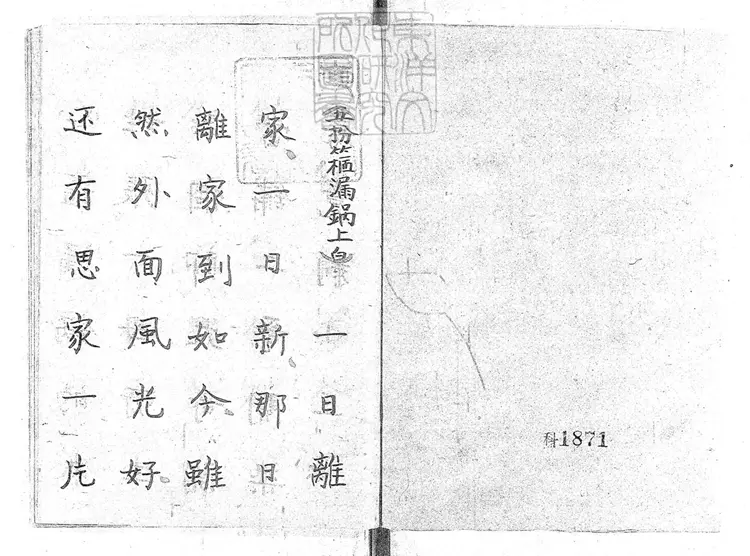 科1871
東洋文
化研究
所圖書
丑扮漏鍋上白
一日離
家、一日新、那日
離家到如今、雖
然外面風光好、
还有思家一片